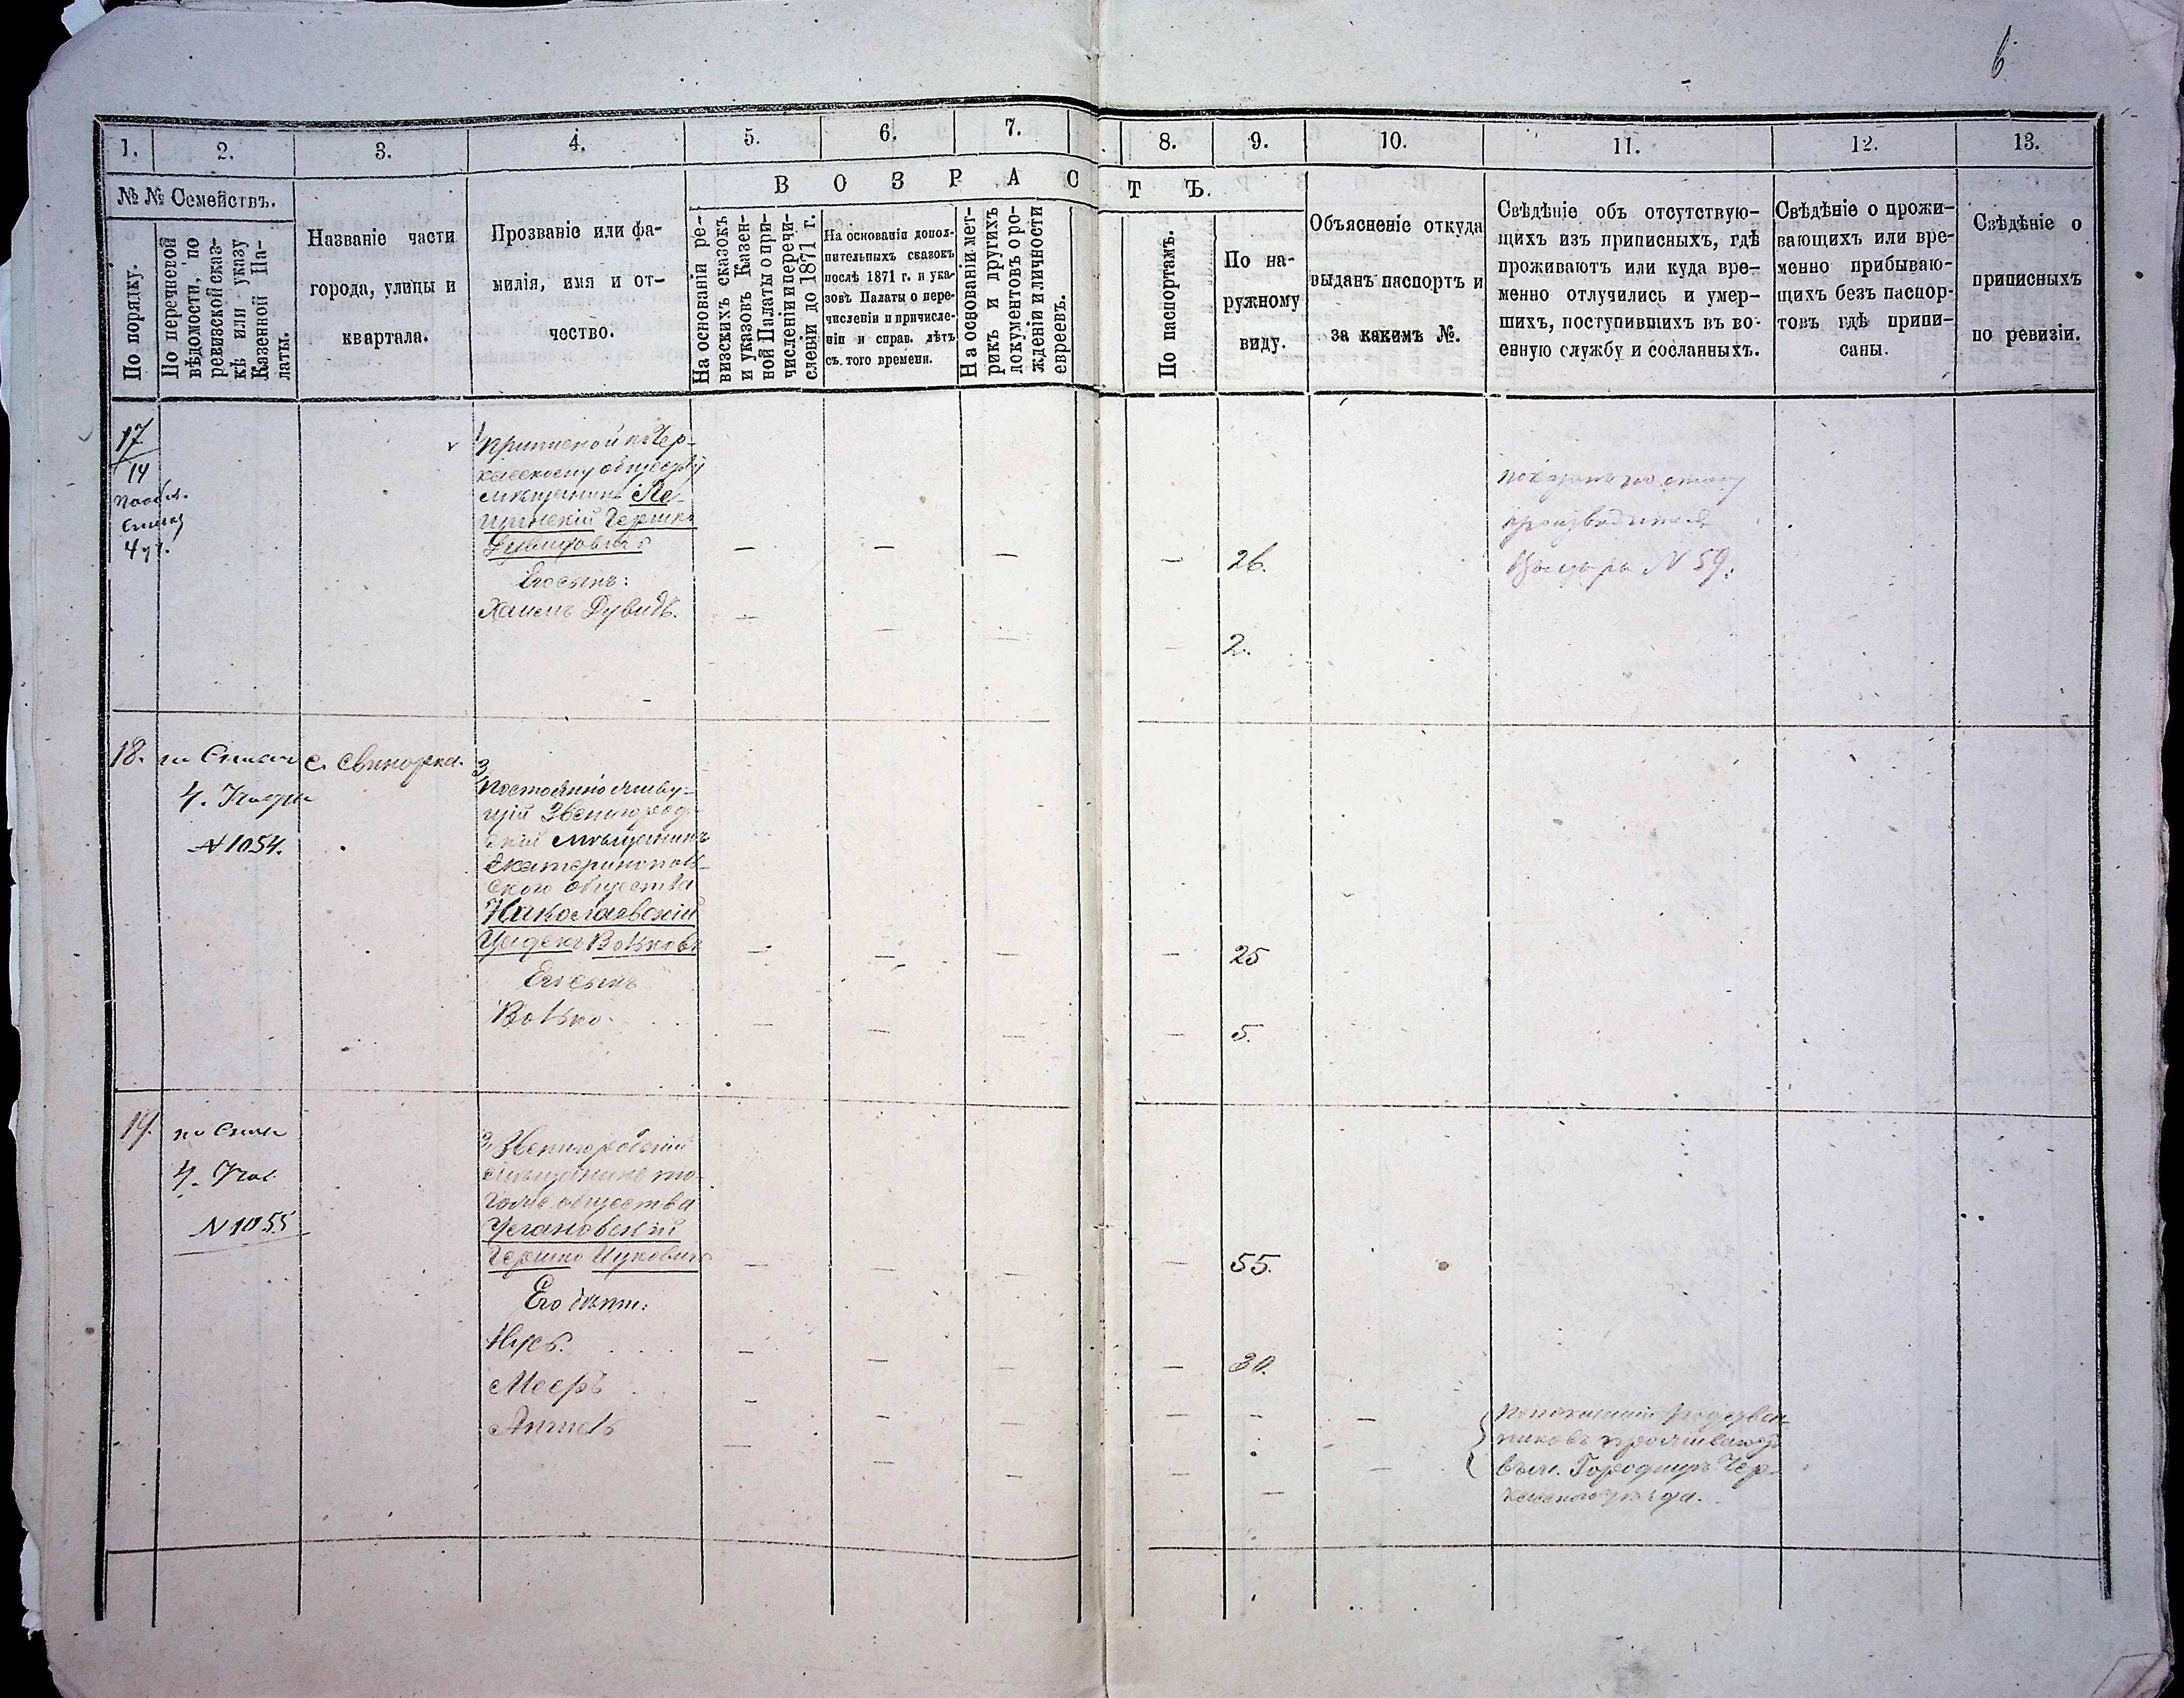 6
1.
2.
3.
4.
5.
6.
7.
8.
9.
10.
11.
12.
13.
№ № Семействъ.
По порядку.
По перечневой
вѣдомости, по
ревизской сказ-
кѣ или указу
Казенной Па-
латы.
Названіе части
города, улицы и
квартала.
Прозваніе или фа-
милія, имя и от-
чество.
В О З Р А С Т Ъ.
На основаніи ре-
визскихъ сказокъ
и указовъ Казен-
ной Палаты о при-
численіи и перечи-
сленіи до 1871 г.
На основаніи допол-
нительныхъ сказокъ
послѣ 1871 г. и ука-
зовъ Палаты о пере-
численіи и причисле-
ніи и справ. лѣтъ
съ того времени.
На основаніи мет-
рикъ и другихъ
документовъ о ро-
жденіи и личности
евреевъ.
По паспортамъ.
По на-
ружному
виду.
Объясненіе откуда
выданъ паспортъ и
за какимъ №.
Свѣдѣніе объ отсутствую-
щихъ изъ приписныхъ, гдѣ
проживаютъ или куда вре-
менно отлучились и умер-
шихъ, поступившихъ въ во-
енную службу и сосланныхъ.
Свѣдѣніе о прожи-
вающихъ или вре-
менно прибываю-
щихъ безъ паспор-
товъ гдѣ припи-
саны.
Свѣдѣніе о
приписныхъ
по ревизіи.
17
14
4 уч.
приписной къ Чер-
касскому обществу
мѣщанинъ
Гершко
— — — — 26.
Его сынъ:
Хаимъ Дувидъ.
— — — — 2.
N 59.
18.
4.
N 1054.
с. Свинарка.
3
Постоянно живу-
щій Звенигород-
скій мѣщанинъ
Екатеринополь-
ского общества
Николаевскій
Волковъ
— — — — 25
Его сынъ
Волько.
— — — — 5.
19.
4.
N 1055
3 Звенигородскій
мѣщанинъ то-
гоже общества
Гершко Ицковичъ
— — — — 55.
Его дѣти:
— — — — 30.
Мееръ
Анчель
проживаютъ
въ м. Городищѣ Чер-
касскаго уѣзда.